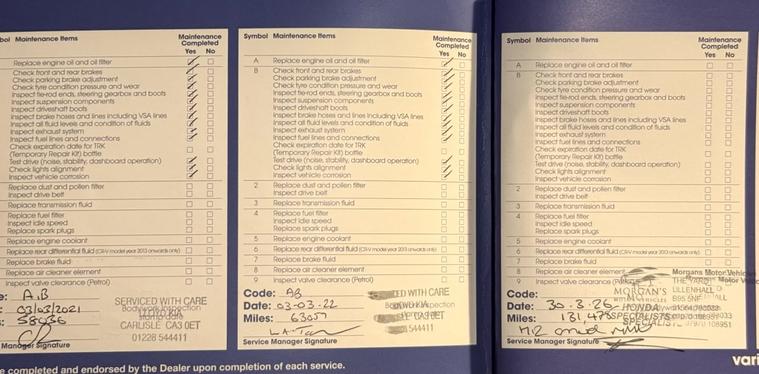 bol Maintenance Items Maintenance Completed
Yes No
Replace engine oil and oil filter
Check front and rear brakes
Check parking brake adjustment
Check tyre condition pressure and wear
Inspect tie-rod ends, steering gearbox and boots
Inspect suspension components
Inspect driveshaft boots
Inspect brake hoses and lines including VSA lines
Inspect all fluid levels and condition of fluids
Inspect exhaust system
Inspect fuel lines and connections
Check expiration date for TRK
(Temporary Repair Kit) bottle
Test drive (noise, stability, dashboard operation)
Check lights alignment
Inspect vehicle corrosion
Replace dust and pollen filter
Inspect drive belt
Replace transmission fluid
Replace fuel filter
Inspect idle speed
Replace spark plugs
Replace engine coolant
Replace rear differential fluid (CR-V model year 2013 onwards only)
Replace brake fluid
Replace air cleaner element
Inspect valve clearance (Petrol)
e: A,B
: 03/03/2021
: 58036
SERVICED WITH CARE
CARLISLE CA3 0ET
01228 544411
Manager Signature
Symbol Maintenance Items Maintenance Completed
Yes No
A Replace engine oil and oil filter
B Check front and rear brakes
Check parking brake adjustment
Check tyre condition pressure and wear
Inspect tie-rod ends, steering gearbox and boots
Inspect suspension components
Inspect driveshaft boots
Inspect brake hoses and lines including VSA lines
Inspect all fluid levels and condition of fluids
Inspect exhaust system
Inspect fuel lines and connections
Check expiration date for TRK
(Temporary Repair Kit) bottle
Test drive (noise, stability, dashboard operation)
Check lights alignment
Inspect vehicle corrosion
2 Replace dust and pollen filter
Inspect drive belt
3 Replace transmission fluid
4 Replace fuel filter
Inspect idle speed
Replace spark plugs
5 Replace engine coolant
6 Replace rear differential fluid (CR-V model year 2013 onwards only)
7 Replace brake fluid
8 Replace air cleaner element
9 Inspect valve clearance (Petrol)
Code: AB
Date: 03-03-22
Miles: 63057
ED WITH CARE
544411
Service Manager Signature
Symbol Maintenance Items Maintenance Completed
Yes No
A Replace engine oil and oil filter
B Check front and rear brakes
Check parking brake adjustment
Check tyre condition pressure and wear
Inspect tie-rod ends, steering gearbox and boots
Inspect suspension components
Inspect driveshaft boots
Inspect brake hoses and lines including VSA lines
Inspect all fluid levels and condition of fluids
Inspect exhaust system
Inspect fuel lines and connections
Check expiration date for TRK
(Temporary Repair Kit) bottle
Test drive (noise, stability, dashboard operation)
Check lights alignment
Inspect vehicle corrosion
2 Replace dust and pollen filter
Inspect drive belt
3 Replace transmission fluid
4 Replace fuel filter
Inspect idle speed
Replace spark plugs
5 Replace engine coolant
6 Replace rear differential fluid (CR-V model year 2013 onwards only)
7 Replace brake fluid
8 Replace air cleaner element
9 Inspect valve clearance
Morgans Motor Vehicle
THE YARD
MORGAN'S
HONDA
SPECIALISTS
Code:
Date: 30-3-26
Miles: 131,475
Service Manager Signature
vari
e completed and endorsed by the Dealer upon completion of each service.